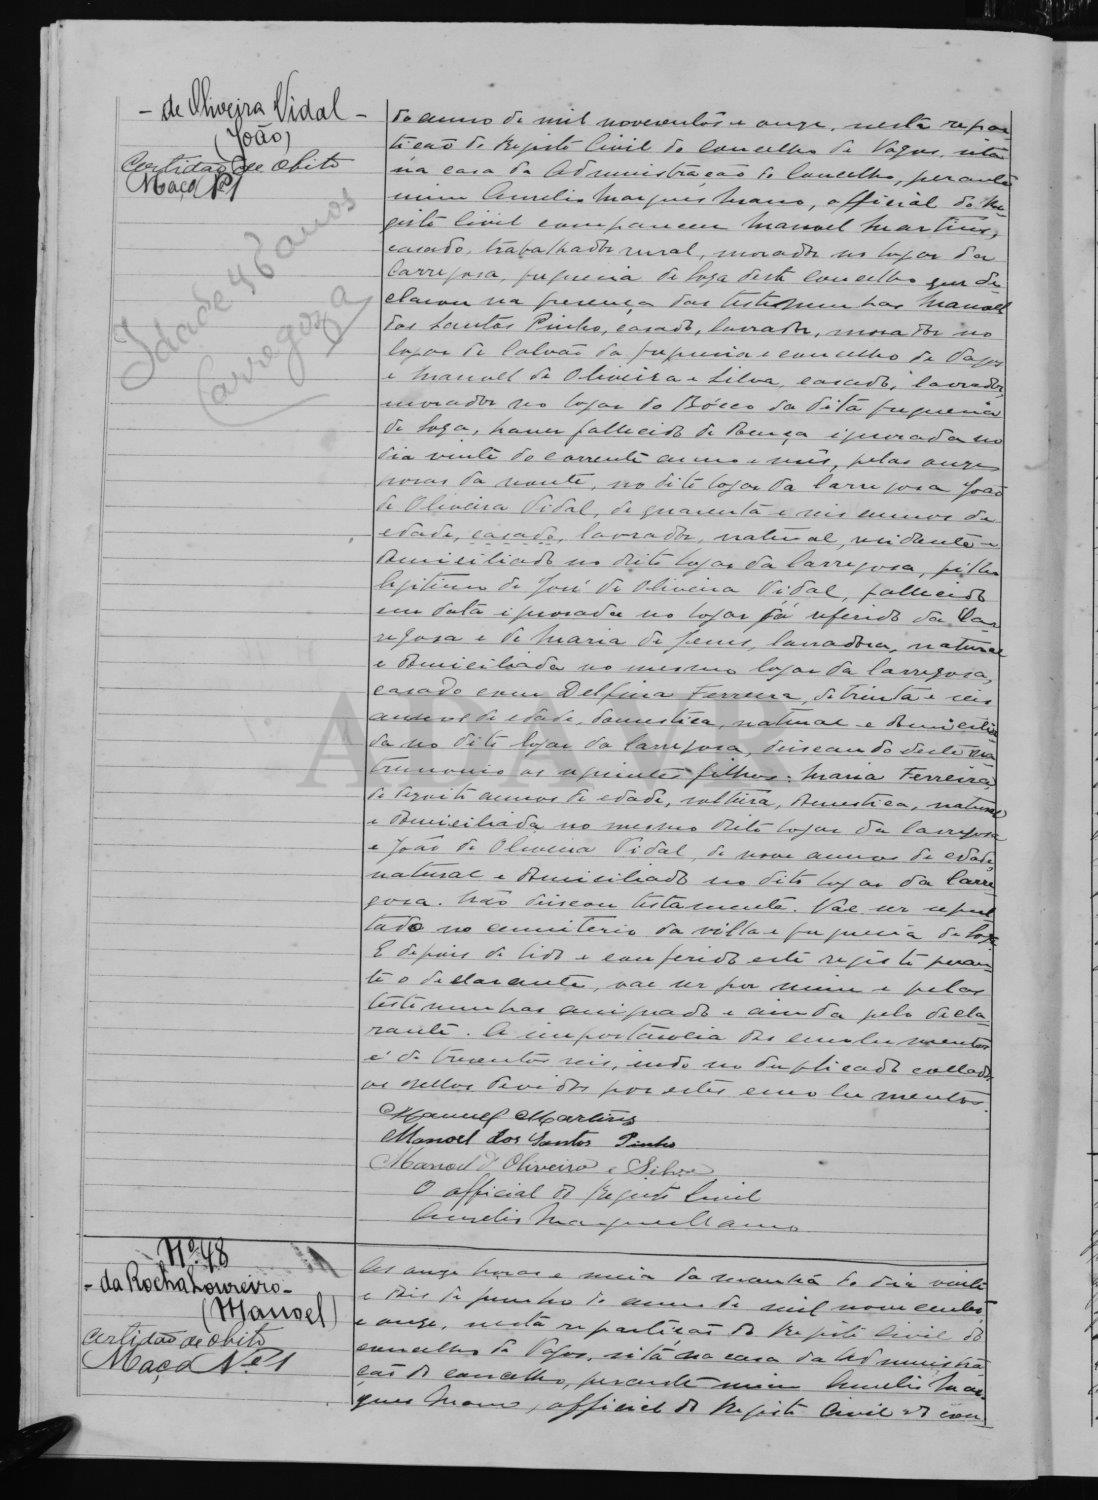 - de Oliveira Vidal -
(João)
Certidão de obito
Maço Nº 1
Idade 46 anos
Carregoza
do anno de mil novecentos e onze, nesta repar-
tição do Registo Civil do concelho de Vagos, sita
na casa da Administração do Concelho, perante
mim Aurelio Marques Mano, official do Re-
gisto Civil compareceu Manoel Martins,
casado, trabalhador rural, morador no logar da
Carregosa, freguezia de Soza deste concelho que de-
clarou na presença das testemunhas Manoel
dos Santos Pinho, casado, lavrador, morador no
logar de Calvão da freguezia e concelho de Vagos
e Manoel de Oliveira e Silva, casado, lavrador,
morador no logar do Bôcco da dita freguezia
de Soza, haver fallecido de doença ignorada no
dia vinte do corrente anno e mês, pelas onze
horas da noute, no dito logar da Carregosa João
de Oliveira Vidal, de quarenta e seis annos de
edade, casado, lavrador, natural, residente e
domiciliado no dito logar da Carregosa, filho
legitimo de José de Oliveira Vidal, fallecido
em data ignorada no logar já referido da Car-
regosa e de Maria de Jesus, lavradora, natural
e domiciliada no mesmo logar da Carregosa,
casado com Delfina Ferreira, de trinta e seis
annos de edade, domestica, natural e domicilia-
da no dito logar da Carregosa, deixando deste ma-
trimonio os seguintes filhos: Maria Ferreira,
de dezoito annos de edade, solteira, domestica, natural
e domiciliada no mesmo dito logar da Carregosa
e João de Oliveira Vidal, de nove annos de edade,
natural e domiciliado no dito logar da Carre-
gosa. Não deixou testamento. Vae ser sepul-
tado no cemiterio da villa e freguezia de Soza.
E depois de lido e conferido este registo peran-
te o declarante, vae ser por mim e pelas
testemunhas assignado e ainda pelo decla-
rante. A importancia dos emolumentos
é de trezentos reis, indo no duplicado collados
os sellos devidos por estes emolumentos.
Manuel Martins
Manoel dos Santos Pinho
Manoel d'Oliveira e Silva
O official do Registo Civil
Aurelio Marques Mano
Nº 48
- da Rocha Loureiro -
(Manoel)
Certidão de obito
Maço Nº 1
Ás onze horas e meia da manhã do dia vinte
e dois de junho do anno de mil novecentos
e onze, nesta repartição do Registo Civil do
concelho de Vagos, sita na casa da Administra-
ção do concelho, perante mim Aurelio Mar-
ques Mano, official do Registo Civil do con-
ADAVR